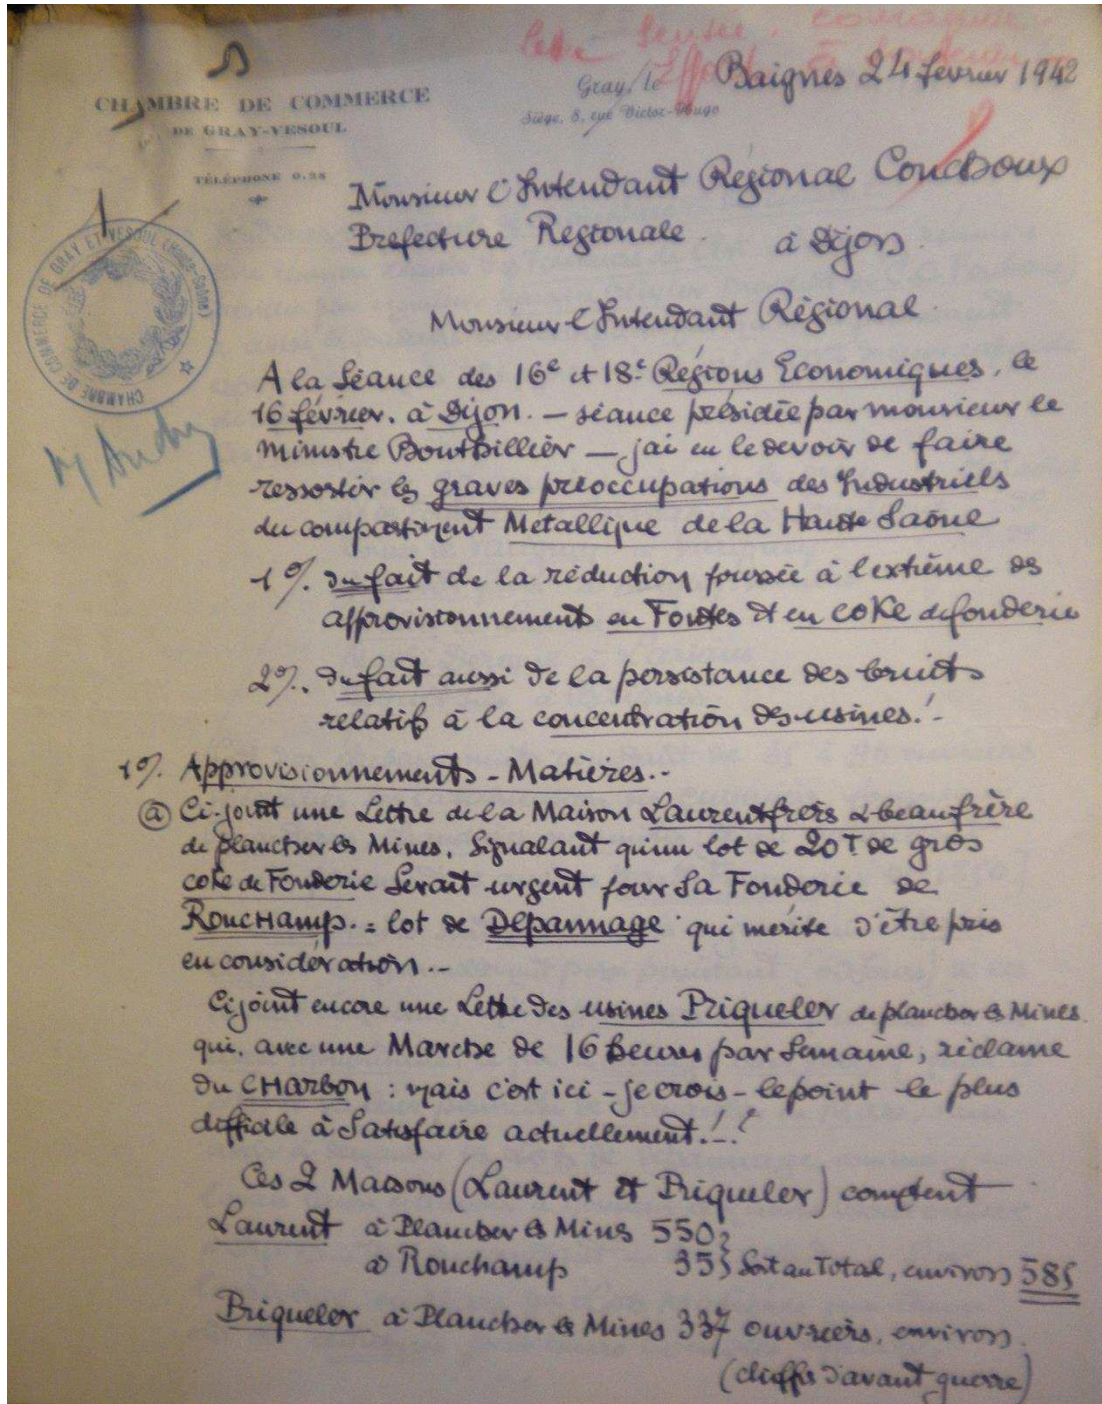 CHAMBRE DE COMMERCE
DE GRAY-VESOUL
TÉLÉPHONE 0.28
Gray, le Baignes 24 février 1942
Siège, 8, rue Victor-Hugo
CHAMBRE DE COMMERCE DE GRAY ET VESOUL (Haute-Saône)
Monsieur l'Intendant Régional
Prefecture Regionale à Dijon
Monsieur l'Intendant Régional
A la Séance des 16e et 18e Régions Economiques, le
16 février, à Dijon. — séance présidée par monsieur le
ministre Bouthillier — j'ai eu le devoir de faire
ressortir les graves préoccupations des Industriels
du compartiment Metallique de la Haute Saône
1°/. du fait de la réduction poussée à l'extrême des
approvisionnements en Fontes et en coke de fonderie
2°/. du fait aussi de la persistance des bruits
relatifs à la concentration des usines.!-
1°/. Approvisionnements - Matières.-
(a) Ci-joint une Lettre de la Maison Laurent frères & beau frère
de plancher les Mines, signalant qu'un lot de 20 T de gros
coke de Fonderie serait urgent pour sa Fonderie de
Ronchamp. = lot de Dépannage qui mérite d'être pris
en considération.-
Ci joint encore une Lettre des usines Briqueler de plancher les Mines
qui, avec une Marche de 16 heures par Semaine, réclame
du CHarbon : mais c'est ici - je crois - le point le plus
difficile à Satisfaire actuellement.!-!
Ces 2 Maisons (Laurent et Briqueler) comptent
Laurent à Plancher les Mines 550}
à Ronchamp 35} Soit au Total, environ 585
Briqueler à Plancher les Mines 337 ouvriers, environ.
(chiffres d'avant guerre)